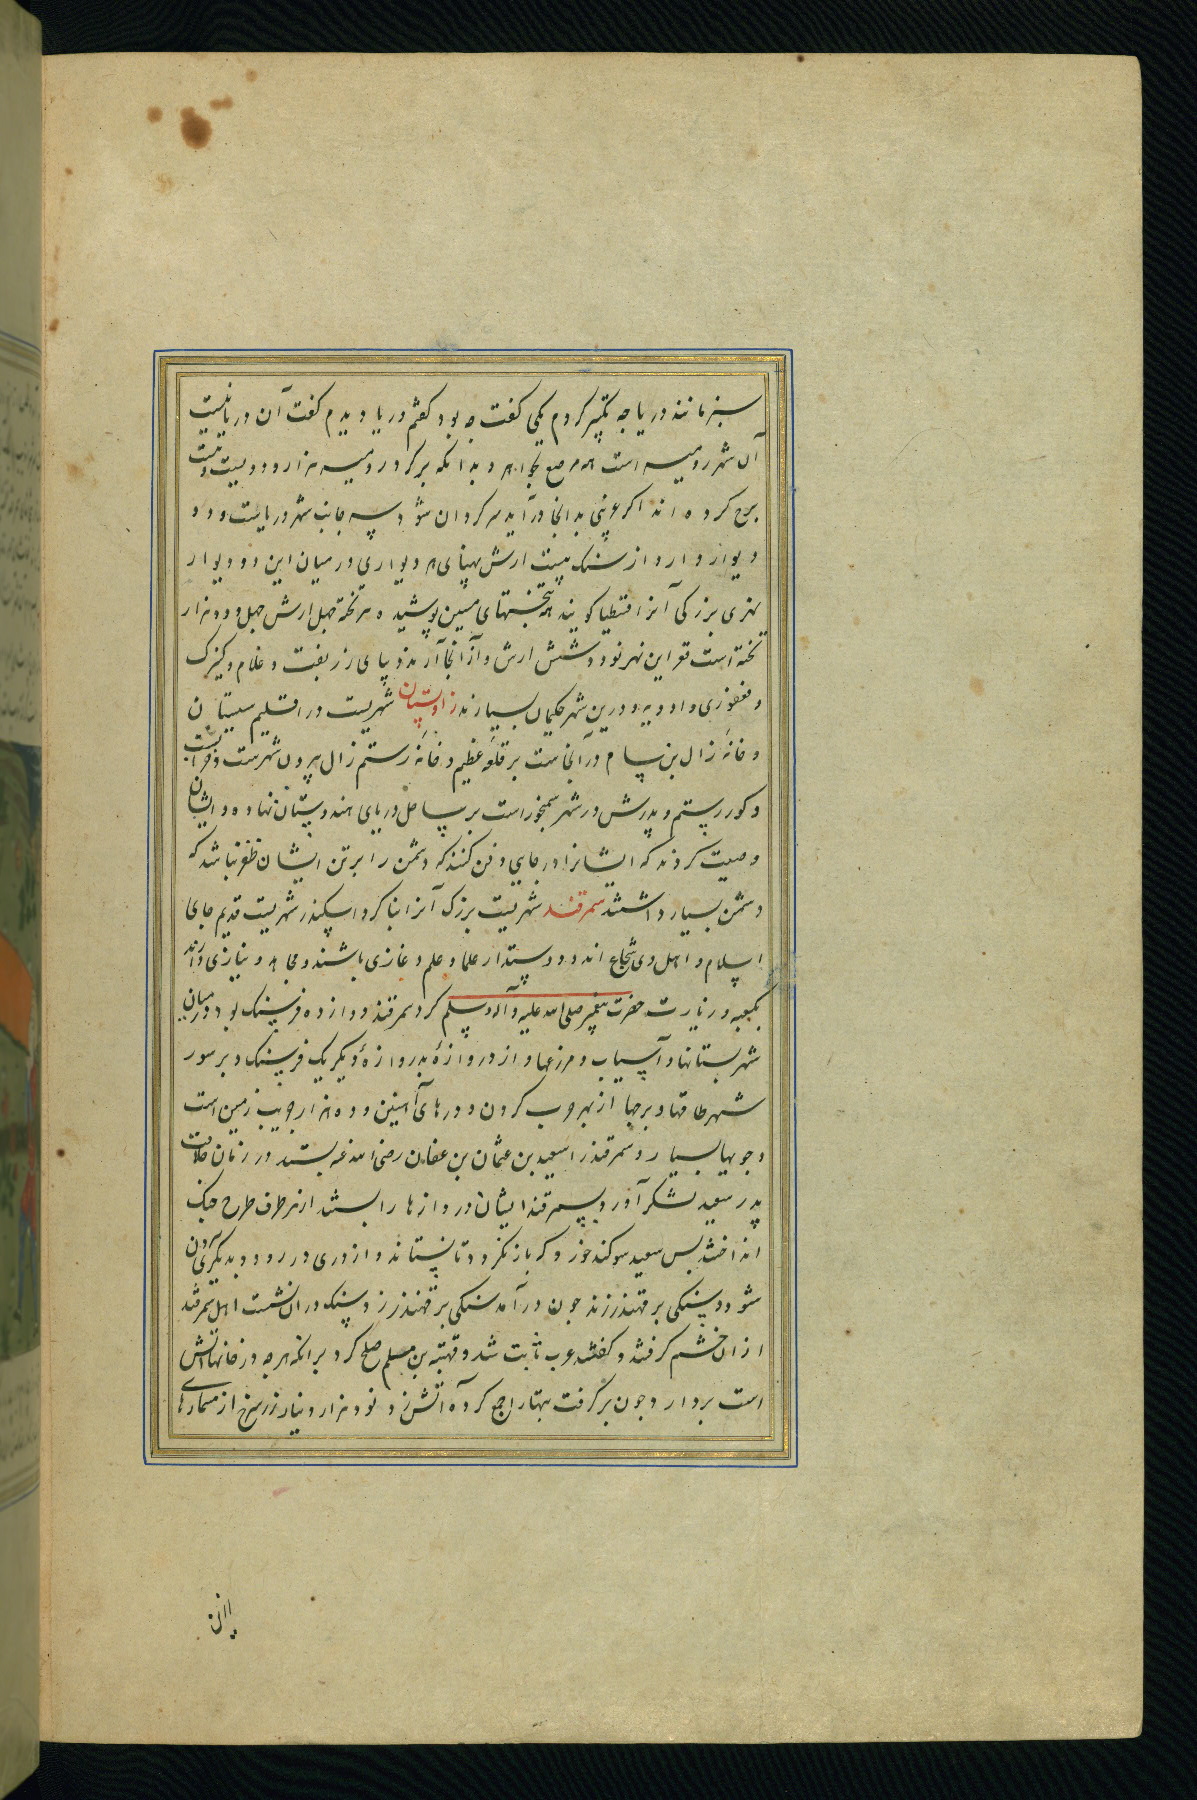 سبز مانند دریا چه تکبیر کردم یکی گفت چه بود گفتم دریا دیدم گفت آن دریا نیست
آن شهر رومیه است همه مرصع بجواهر و بدانکه بر کرد رومیه هزار و دویست و بیست
برج کرده اند اکر غریبی بدانجا در آید سرکردان شود و سه جانب شهر دریا است و دو
دیوار دارد از سنک بیست ارش پهنای هر دیواری در میان این دو دیوار
نهری بزرکی آنرا قنطیا کویند همه بتختهای مسین پوشیده هر تخته چهل ارش چهل و دو هزار
تخته است قعر این نهر نود و شش ارش و از آنجا آرند دیبای زربفت و غلام و کنیزک
و فغفوری و ادویه و درین شهر حکیمان بسیارند زاولستان شهریست در اقلیم سیستان
و خانه زال بن سام در آنجاست بر قلعه عظیم و خانه رستم زال بیرون شهرست و خرابست
و کور رستم و پدرش در شهر سمنجور است بر ساحل دریای هندوستان نهاده و ایشان
وصیت کردند که ایشانرا در جایی دفن کنند که دشمن را بر تن ایشان ظفر نباشد که
دشمن بسیار داشتند سمرقند شهریست بزرک آنرا بنا کرد اسکندر شهریست قدیم جای
اسلام و اهل وی شجاع اند و دوستدار علما و علم و غازی باشند و مجاهد و نیازی دارند
بکعبه و زیارت حضرت پیغمبر صلی الله علیه و آله و سلم کرد سمرقند دوازده فرسنک بود و در میان
شهر بستانها و آسیاب و مزرعها و از دروازهٔ بدروازهٔ دیکر یک فرسنک و بر سور
شهر طاقها و برجها از بهر حرب کردن و درهای آهنین و ده هزار جریب زمین است
و جویها بسیار و سمرقند را سعید بن عثمان بن عفان رضی الله عنه بستد در زمان خلافت
پدر سعید لشکر آورد بسمرقند ایشان دروازها را بستند از هر طرف طرح جنک
انداختند پس سعید سوکند خورد که باز نکردد تا بستاند و از دری در رود و بدیکری بیرون
شود و سنکی بر قهندز زند چون در آمد سنکی بر قهندز زد و سنک در آن نشست اهل سمرقند
از آن خشم کرفتند و کفتند عرب ثابت شد و قتیبه بن مسلم صلح کرد بر آنکه هر چه در خانهاء آتش
است بردارد و چون بر کرفت بتها را جمع کرد و آتش زد و نود هزار دینار زر سرخ از مسمارهای
آن